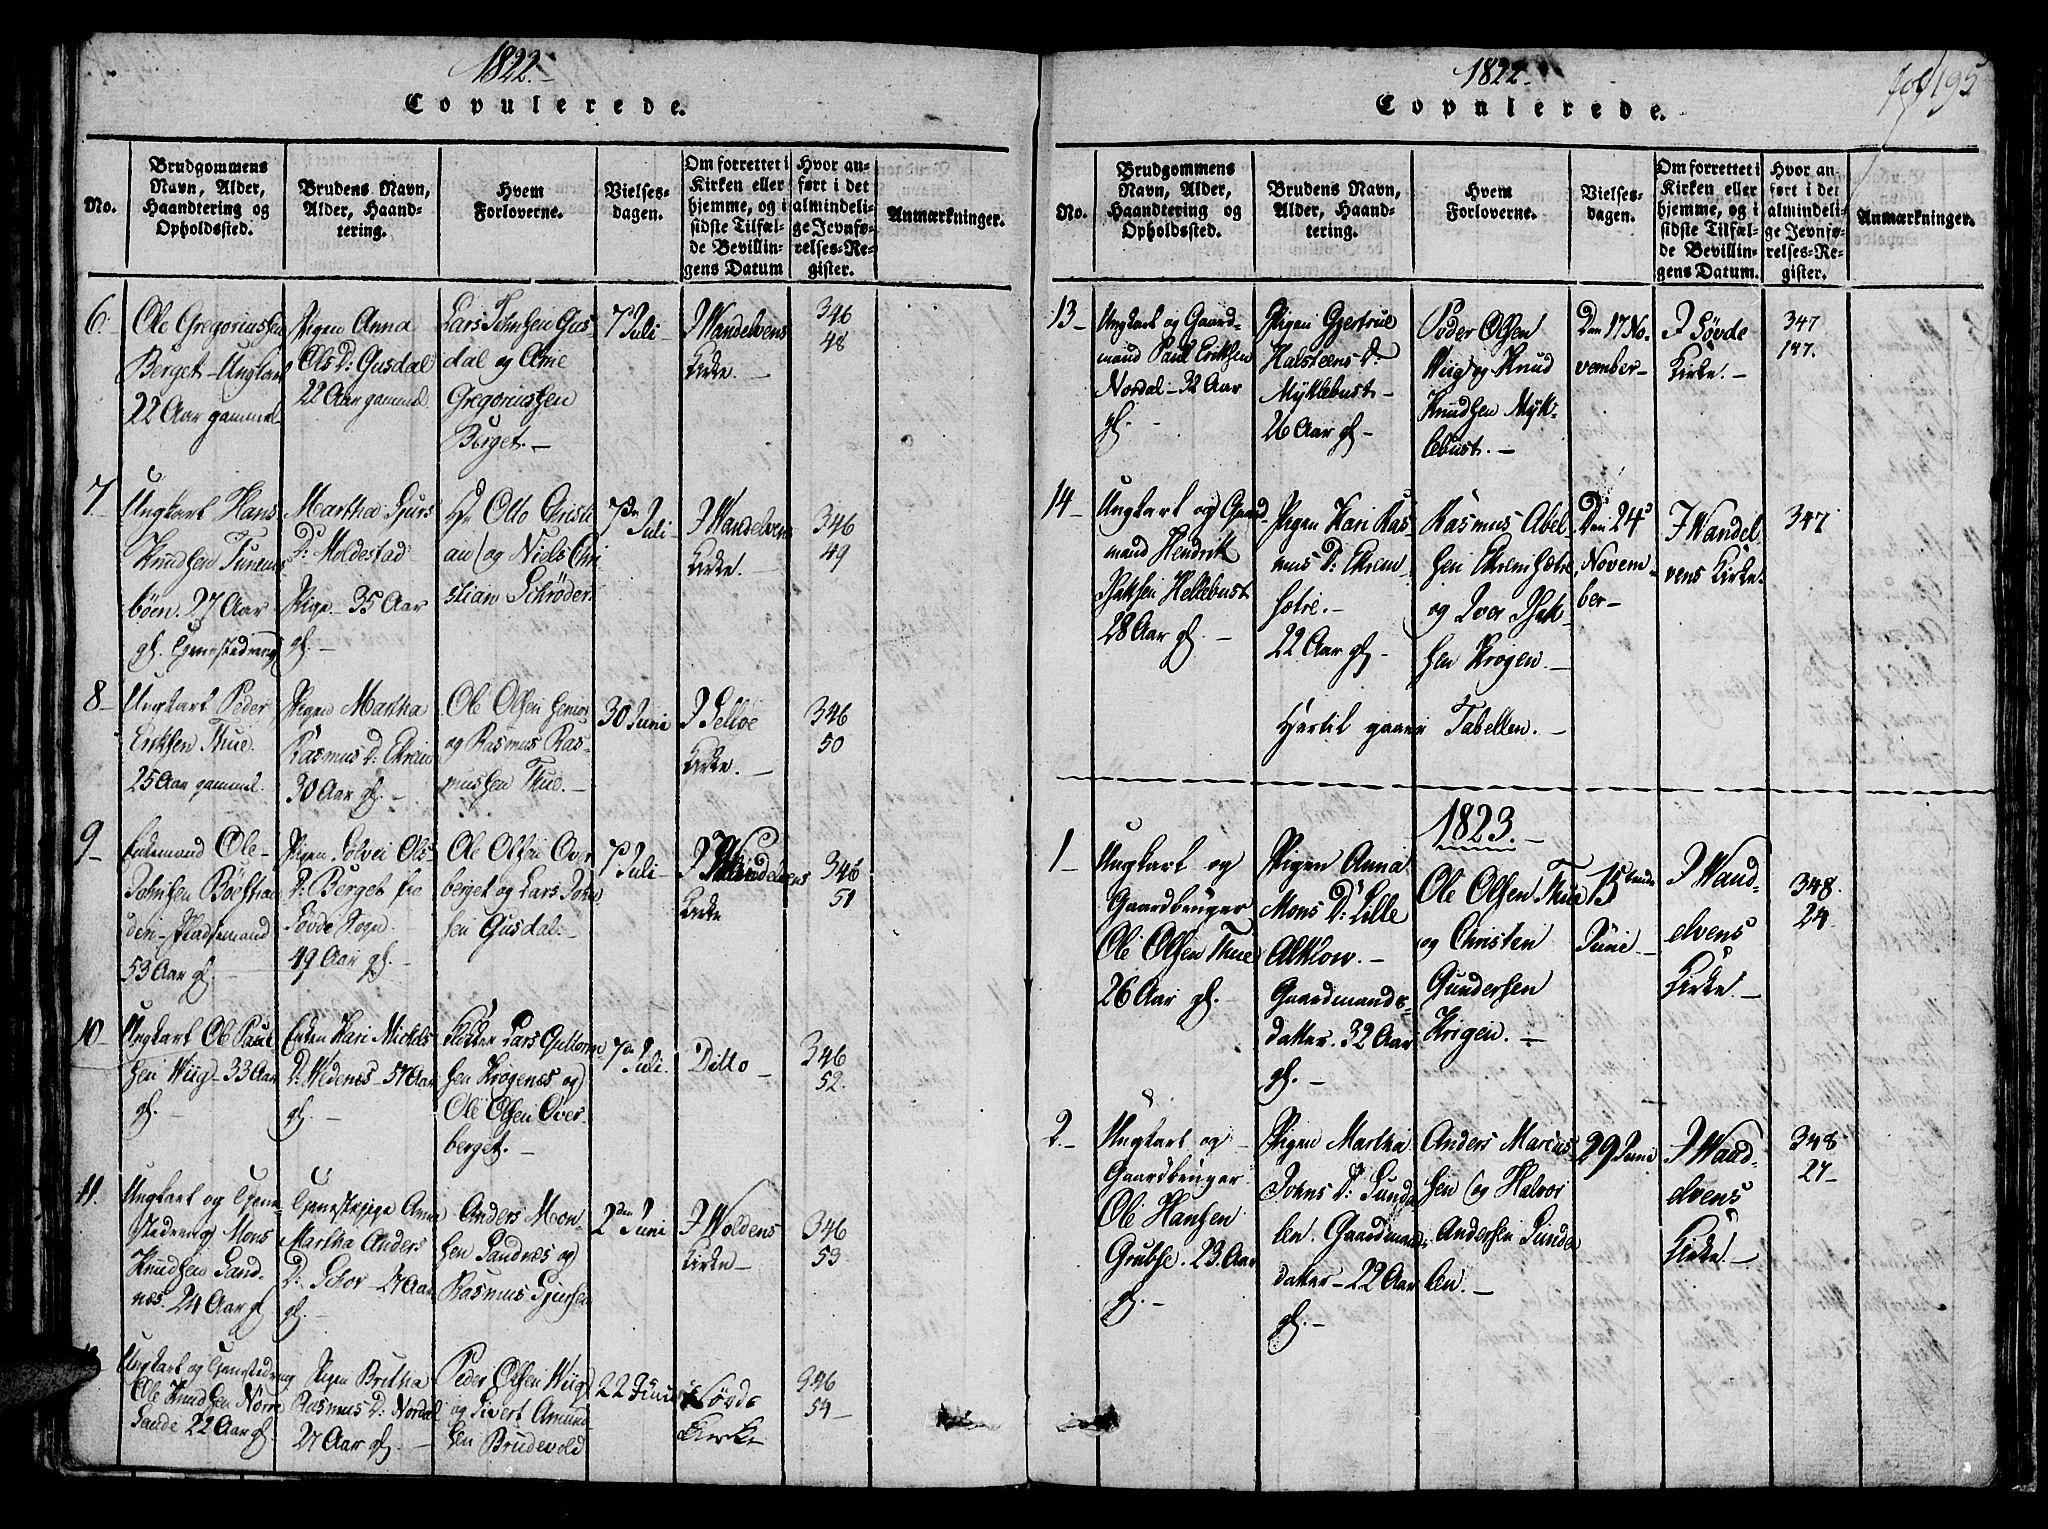 1822.
Copulerede.
No.
Brudgommens
Navn, Alder,
Haandtering og
Opholdssted.
Brudens Navn,
Alder, Haand-
tering.
Hvem
Forloverne.
Vielses-
dagen.
Om forrettet i
Kirken eller
hjemme, og i
sidste Tilfæl-
de Bevillin-
gens Datum
Hvor an-
ført i det
almindeli-
ge Jevnfø-
relses-Re-
gister.
Anmærkninger.
6.
Ole Gregoriussen
Berget - Ungkarl
22 Aar gammel
Pigen Anna
Ols D: Gusdal
22 Aar gammel
Lars Johnsen Gus-
dal og Arne
Gregoriussen
Berget. -
7 Juli -
I Wandelvens
Kirke. -
346
48
7
Ungkarl Hans
Knudsen Tunems
böen. 27 Aar
gl.
Martha Sjurs
D: Moldestad
Pige - 35 Aar
gl. -
Hr Otto Christi
an og Niels Chri
stian Schröder.
7de Juli -
I Wandelvens
Kirke. -
346
49
8 -
Ungkarl Peder
Eriksen Thue.
25 Aar gammel.
Pigen Martha
Rasmus D: Ekrem
30 Aar gl. -
Ole Olsen
og Rasmus Ras-
mussen Thue. -
30 Juni
I Selloe
Kirke. -
346
50
9 -
Enkemand Ole
Johnsen Bölstad
Pladsemand
53 Aar gl. -
Pigen Solvei Ols
D: Berget fra
Søvde Sogn.
49 Aar gl. -
Ole Olsen Over
berget og Lars John
sen Gusdal. -
7 Juli -
I Wandelvens
Kirke
346
51
10 -
Ungkarl Ole Paul
sen Wiig - 33 Aar
gl. -
Enken Kari Niels
D: Wedenæs - 57 Aar
gl. -
Lars Guttorm
sen Krogenæs og
Ole Olsen Over-
berget. -
7de Juli.
Ditto -
346
52.
11.
Ungkarl og Tjene-
stedreng Mons
Knudsen Sand-
næs. 24 Aar gl
Tjenestepige Anne
Martha Anders
D: - 27 Aar
gl. -
Anders Mon-
sen Sandnæs og
Rasmus Sjursen
2den Juni
I Woldens
Kirke -
346
53.
Ungkarl og Tjenestedreng
Ole Knudsen Nørre
Sande 22 Aar gl.
Pigen Brithe
Rasmus D: Nordal
27 Aar gl. -
Peder Olsen Wiig
og Sivert Amund
sen Brudevold
22 Juni
i Sövde
Kirke
346
54 -
1822.
fol 195
Copulerede.
No.
Brudgommens
Navn, Alder,
Haandtering og
Opholdssted.
Brudens Navn,
Alder, Haand-
tering.
Hvem
Forloverne.
Vielses-
dagen.
Om forrettet i
Kirken eller
hjemme, og i
sidste Tilfæl-
de Bevillin-
gens Datum.
Hvor an
ført i det
almindeli-
ge Jevnfø-
relses-Re-
gister.
Anmærkninger.
13 -
Ungkarl og Gaard-
mand Paul Eriksen
Nordal - 32 Aar
gl. -
Pigen Gjertrue
Halsteens D.
Myklebust -
26 Aar gl -
Peder Olsen
Wiig og Knud
Knudsen Myk-
lebust. -
Den 17 No-
vember -
I Søvde
Kirke. -
347
147.
14 -
Ungkarl og Gaard-
mand Hendrik
Hellebust
28 Aar gl. -
Pigen Kari Ras-
mus D: Ekrem-
sætre. -
22 Aar gl -
Rasmus Abel-
sen Ekremsætre
og Iver
sen Krogen. -
Den 24
Novem-
ber -
I Wandel
vens Kirke.
347
Hertil gaaer Tabellen. -
1823. -
1 -
Ungkarl og
Gaardbruger
Ole Olsen Thue
26 Aar gl. -
Pigen Anna
Mons D: Lille
Alklow. -
Gaardmands-
datter. 32 Aar
gl. -
Ole Olsen Thue
og Christen
Gundersen
Krigen. -
15tende
Juni -
I Wand-
elvens
Kirke. -
348.
24
2. -
Ungkarl og
Gaardbruger
Ole Hansen
Grubse. 23 Aar
gl. -
Pigen Martha
Johns D: Sunda
len. Gaardmands
datter - 22 Aar
gl. -
Anders Marius
sen og Halvor
Andersen Sunda
len. -
29 Juni
I Wand-
elvens
Kirke. -
348
27 -